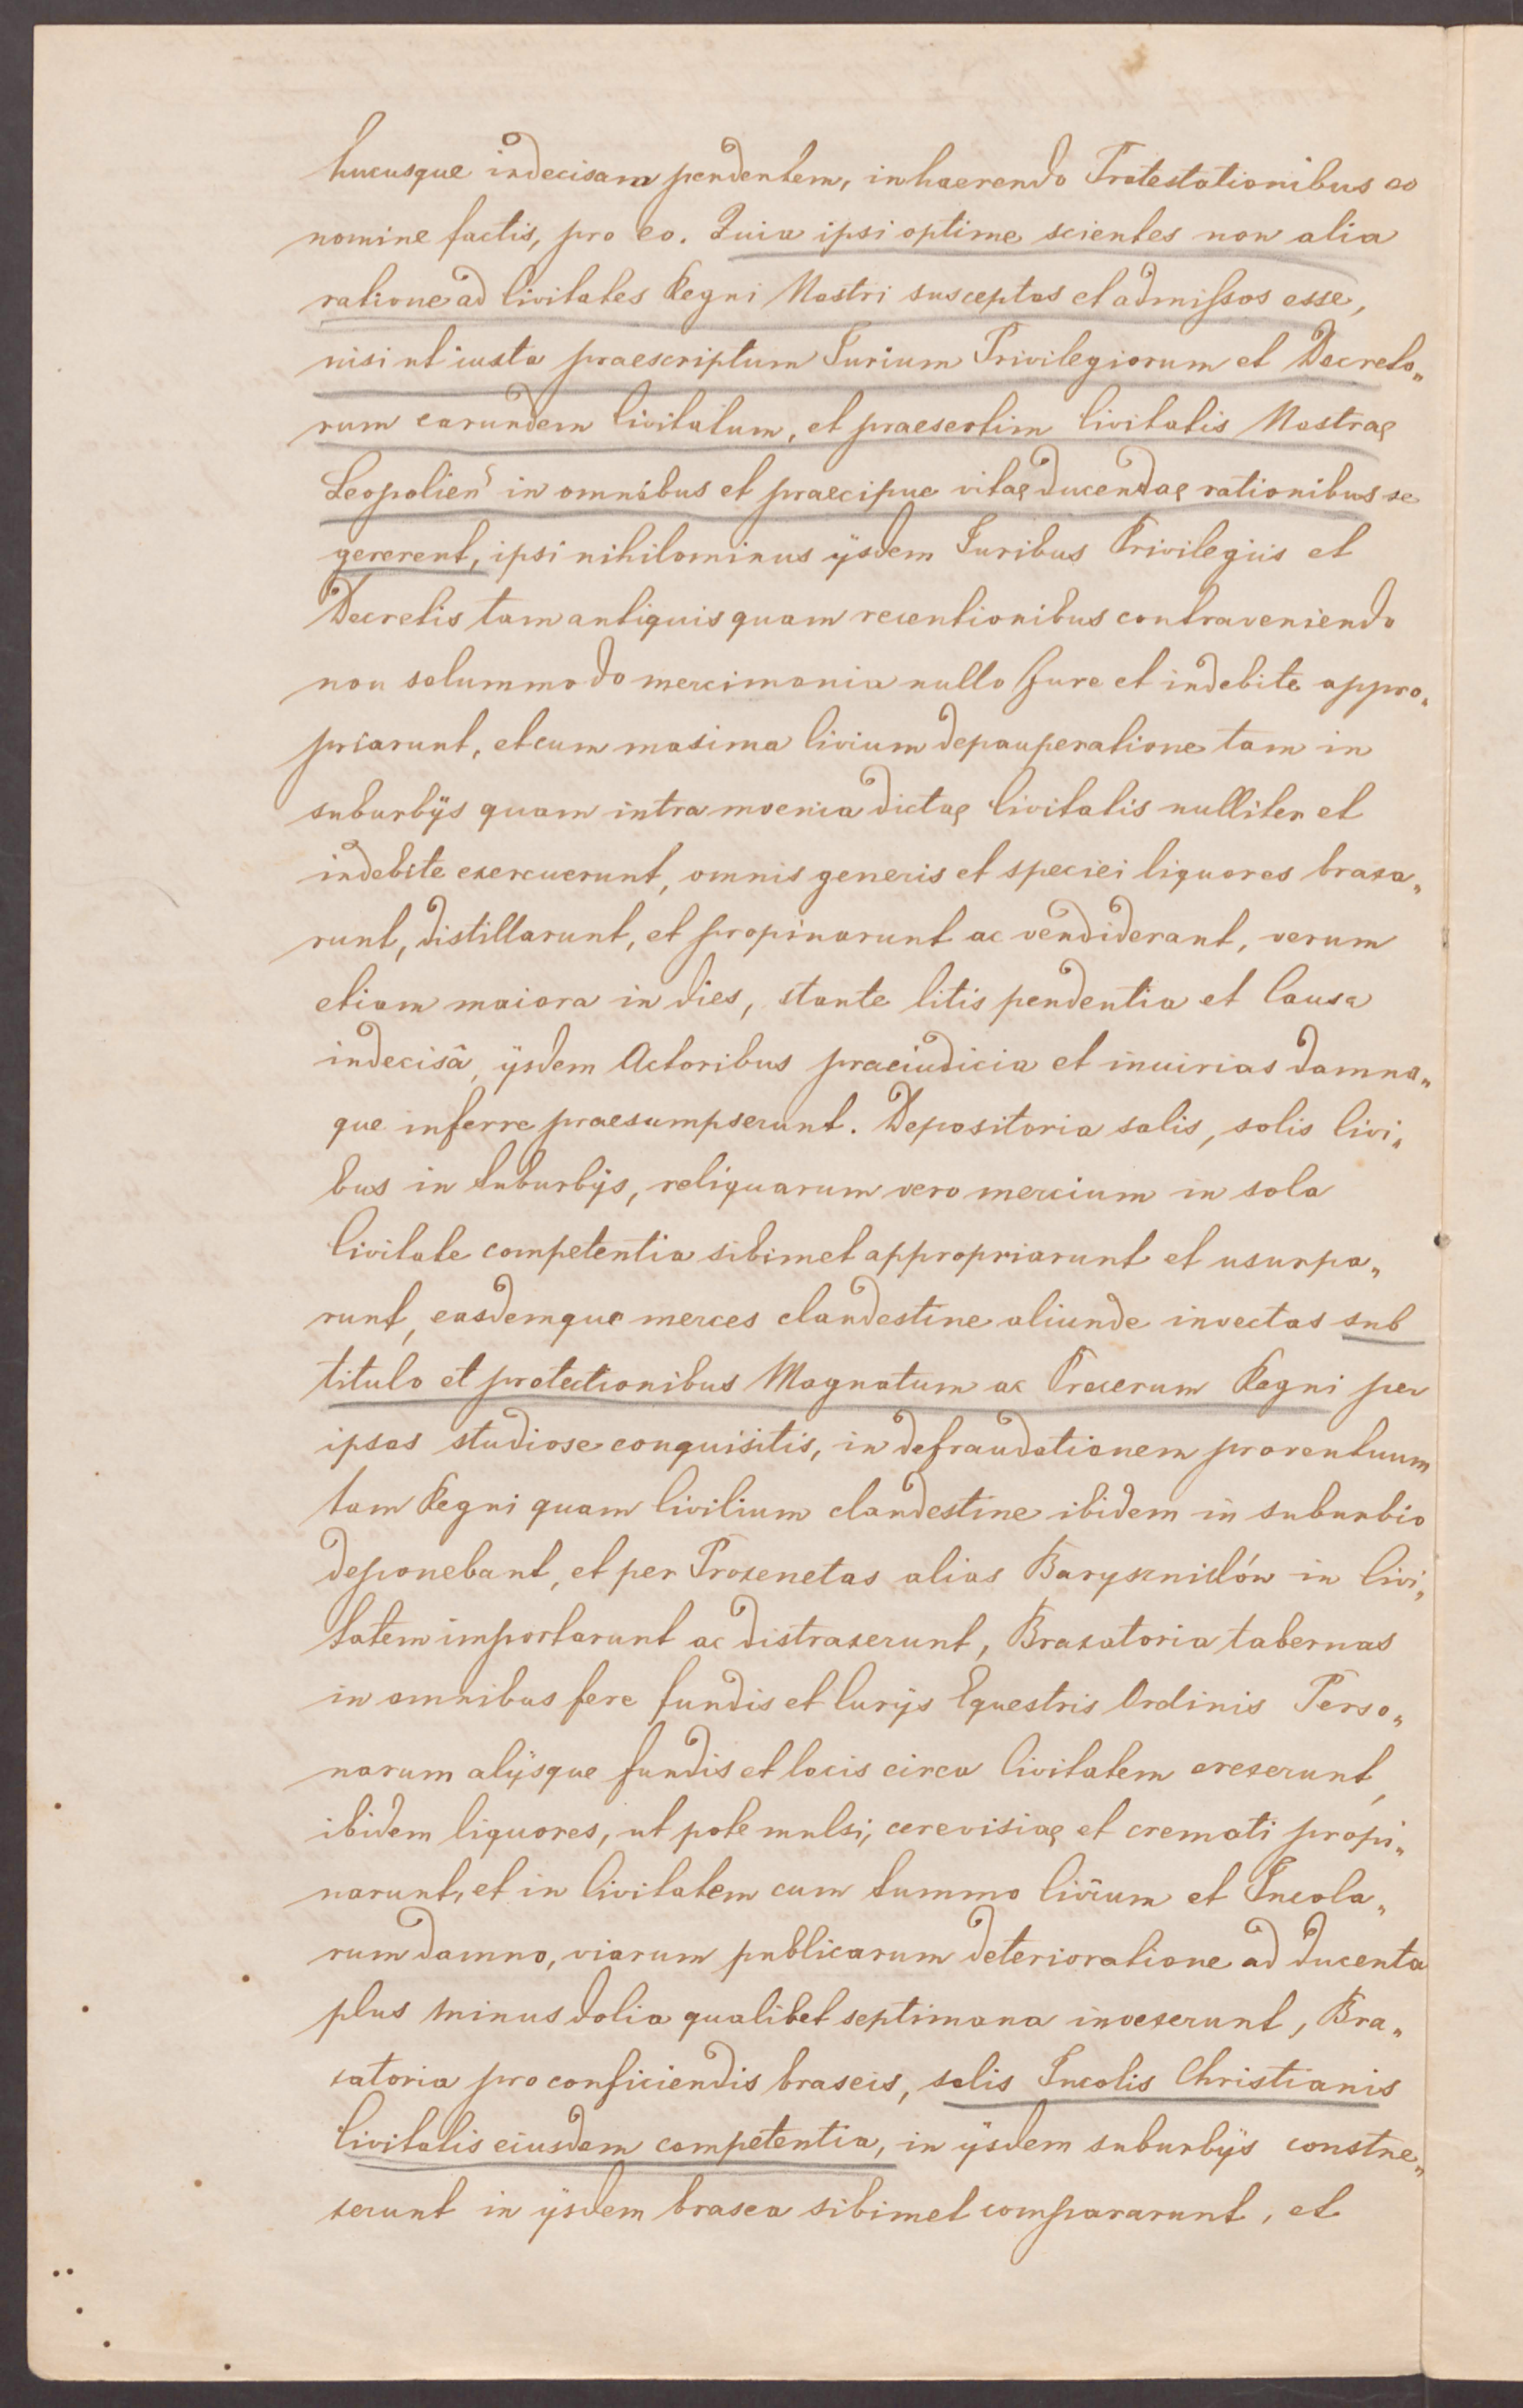 hucusque indecisam pendentem, inhaerendo Protestationibus eo
nomine factis, pro eo. Quia ipsi optime scientes non alia
ratione ad Civitates Regni Nostri susceptos et admissos esse,
nisi ut iuxta praescriptum Jurium Privilegiorum et Decreto„
rum earundem Civitatum, et praesertim Civitatis Nostrae
Leopolien̄ in omnibus et praecipue vitae ducendae rationibus se
gererent, ipsi nihilominus ijsdem Juribus Privilegiis et
Decretis tam antiquis quam recentionibus contraveniendo
non solummodo mercimonia nullo Jure et indebite appro„
priarunt, et cum maxima Civium depauperatione tam in
suburbijs quam intra moenia dictae Civitatis nulliter et
indebite exercuerunt, omnis generis et speciei liquores braxa„
runt, distillarunt, et propinarunt ac vendiderant, verum
etiam maiora in dies, stante litis pendentia et Causa
indecisâ, ijsdem Actoribus praeiudicia et iniurias damna„
que inferre praesumpserunt. Depositoria salis, solis Civi„
bus in Suburbijs, reliquarum vero mercium in sola
Civitate competentia sibimet appropriarunt et usurpa„
runt, easdemque merces clandestine aliunde invectas sub
titulo et protectionibus Magnatum ac Procerum Regni per
ipsos studiose conquisitis, in defraudationem proventuum
tam Regni quam Civilium clandestine ibidem in suburbio
deponebant, et per Proxenetas alias Barysznikόw in Civi„
tatem importarunt ac distraxerunt, Braxatoria tabernas
in omnibus fere fundis et Curijs Equestris Ordinis Perso„
narum alijsque fundis et locis circa Civitatem erexerunt,
ibidem liquores, ut pote mulsi, cerevisiae et cremati propi„
narunt, et in Civitatem cum summo Civium et Incola„
rum damno, viarum publicarum deterioratione ad ducenta
plus minus dolia qualibet septimana invexerunt, Bra„
xatoria pro conficiendis braseis, solis Incolis Christianis
Civitatis eiusdem competentia, in ijsdem suburbijs constru„
xerunt in ijsdem brasea sibimet compararunt, et